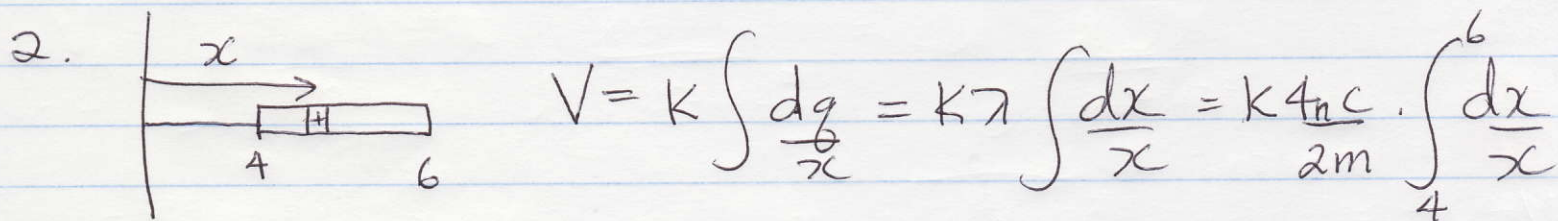 2.
x
4 6
V = K ∫ dq/x = Kλ ∫ dx/x = K 4nC/2m · ∫₄⁶ dx/x